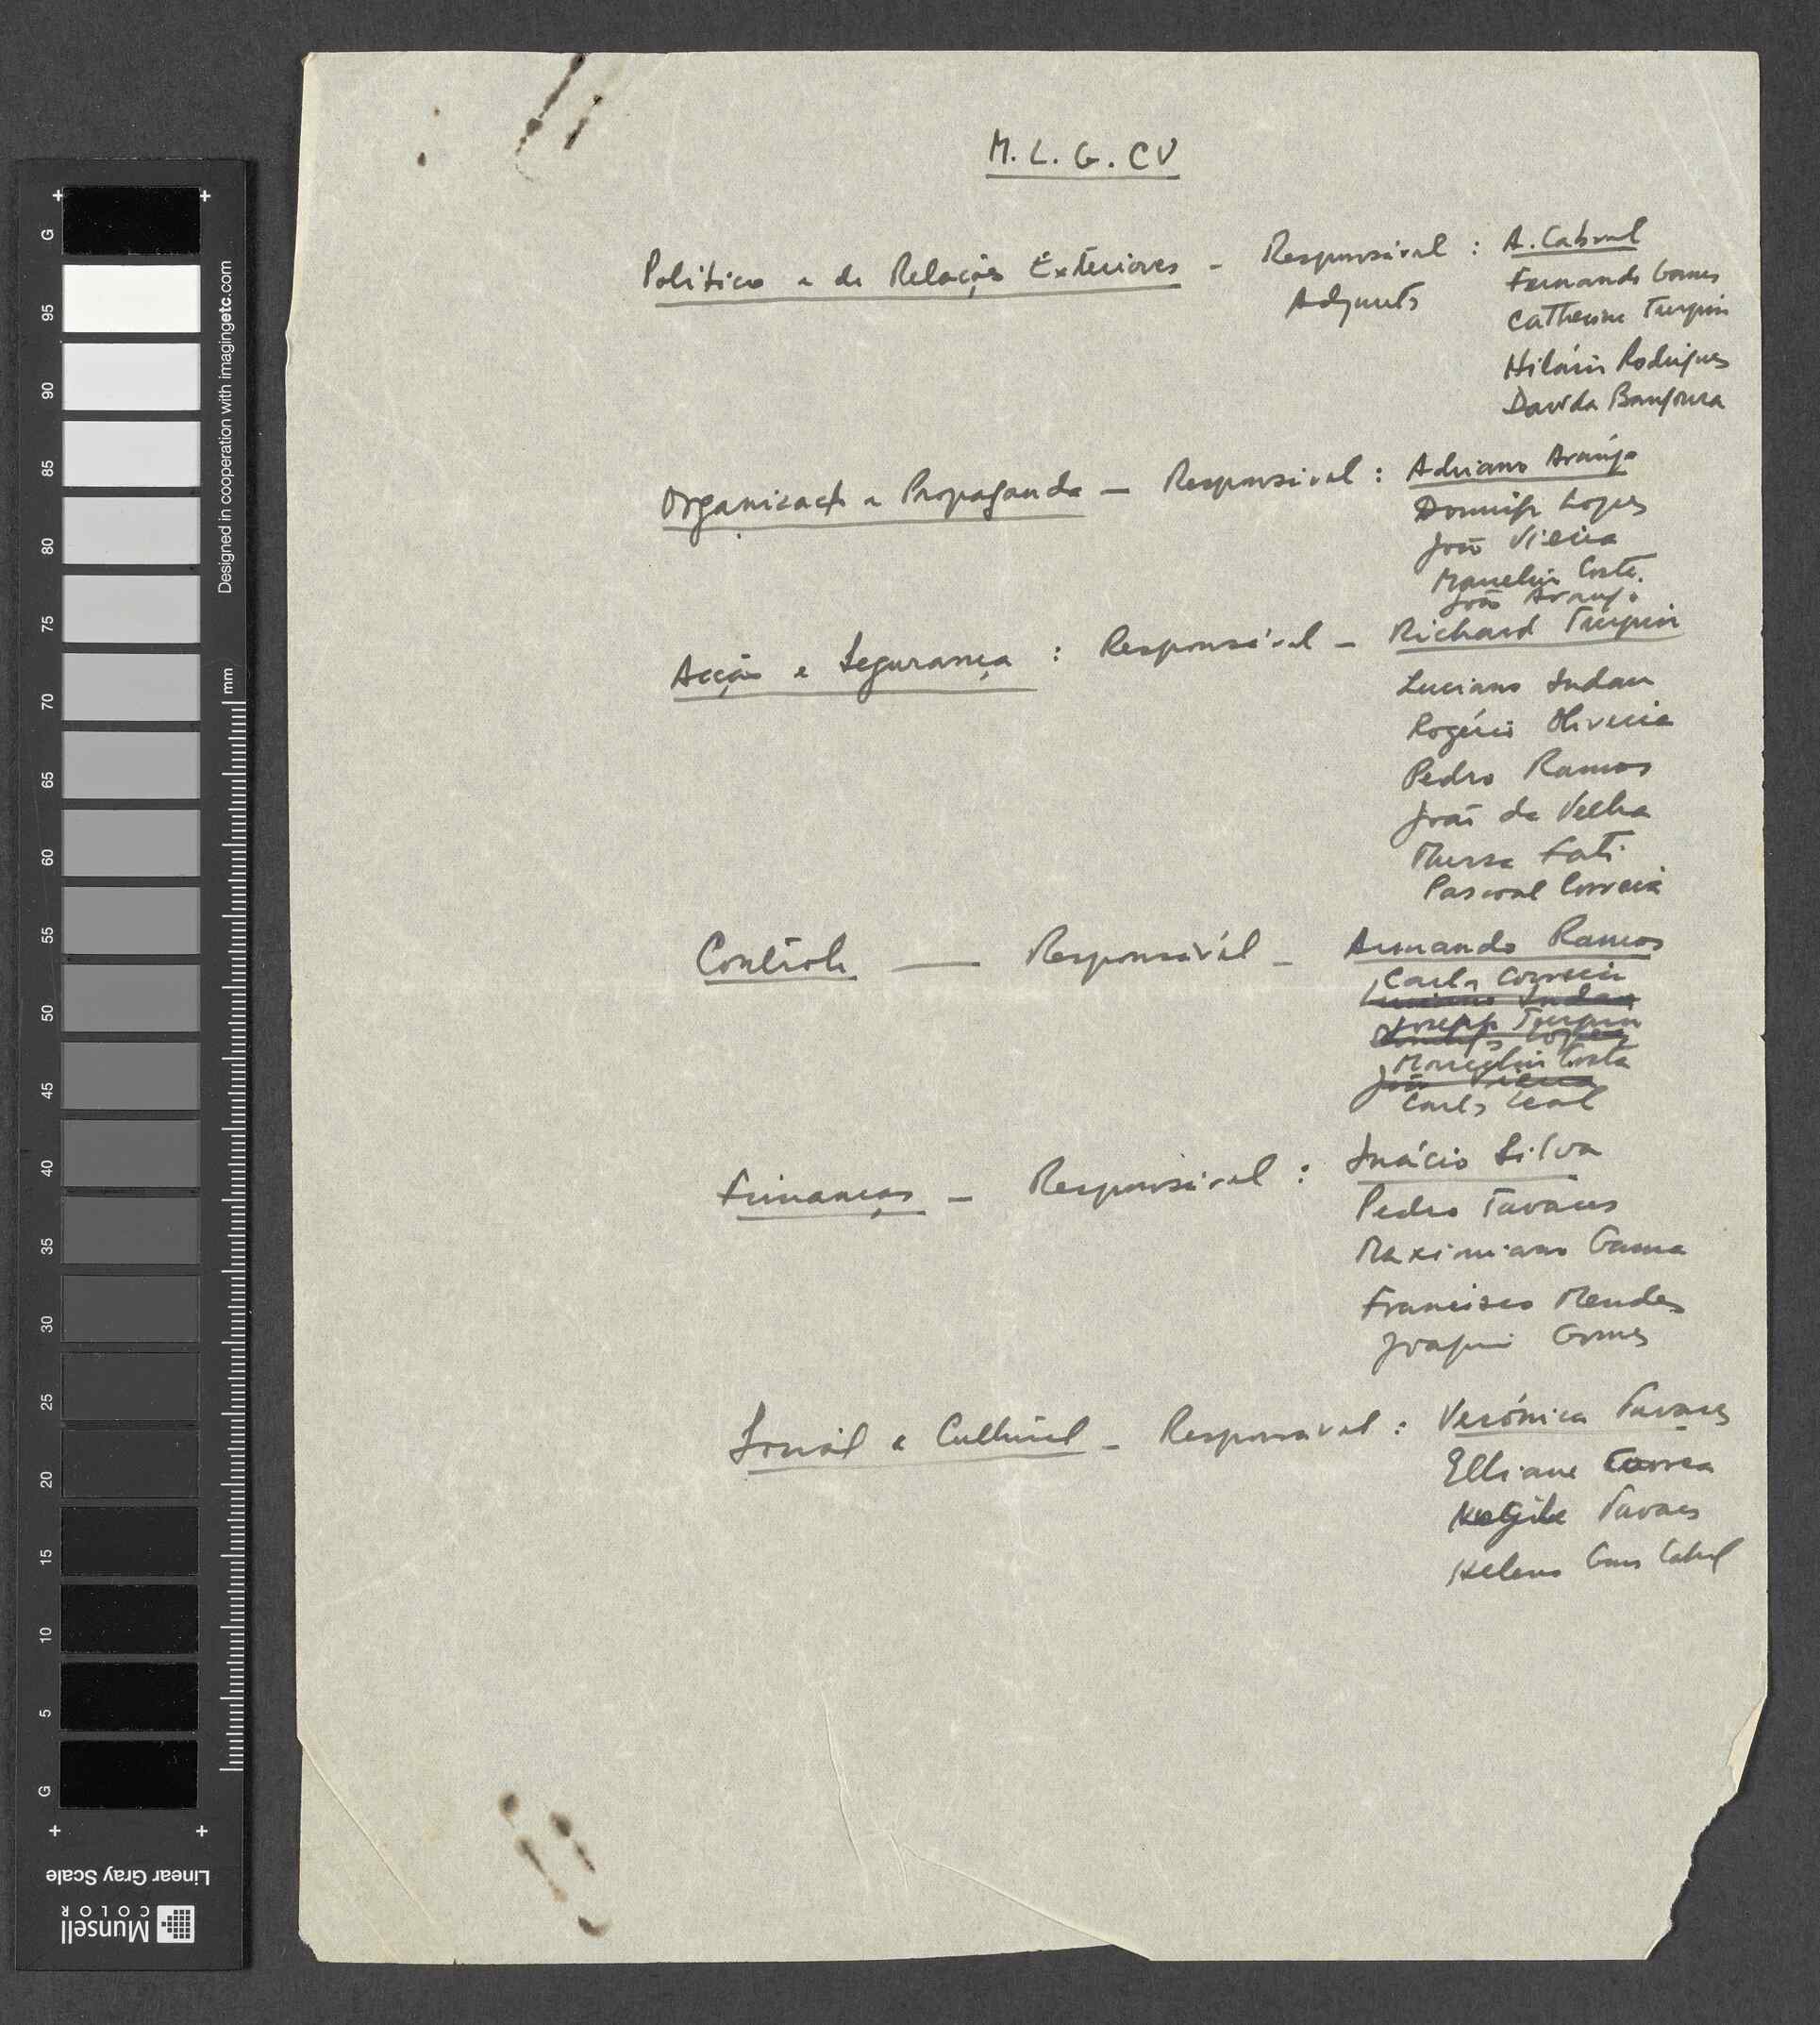 M. L. G. CV
Politico e de Relações Exteriores - Responsável : A. Cabral
Adjuntos Fernando Gomes
Catherine Turpin
Hilário Rodrigues
Davida Bangoura
Organização e Propaganda — Responsável : Adriano Araújo
Domingos Lopes
João Vieira
Marcelino Costa.
João Araujo
Acção e Segurança : Responsável - Richard Turpin
Luciano Indau
Rogério Oliveira
Pedro Ramos
João da Velha
Mussa Fati
Pascoal Correia
Contrôle. — Responsável - Armando Ramos
Carlos Correia
Luciano Indau
Joseph Turpin
Domingos Lopes
Marcelino Costa
João Vieira
Carlos Leal
Finanças - Responsável : Inácio Silva
Pedro Tavares
Maximiano Gama
Francisco Mendes
Joaquim Gomes
Social e Cultural - Responsável : Verónica Tavares
Elliane Correa
Tavares
Helena Cabral
G 95 90 85 80 75 70 65 60 55 50 45 40 35 30 25 20 15 10 5 G
mm
Designed in cooperation with imagingetc.com
Linear Gray Scale
Munsell
COLOR